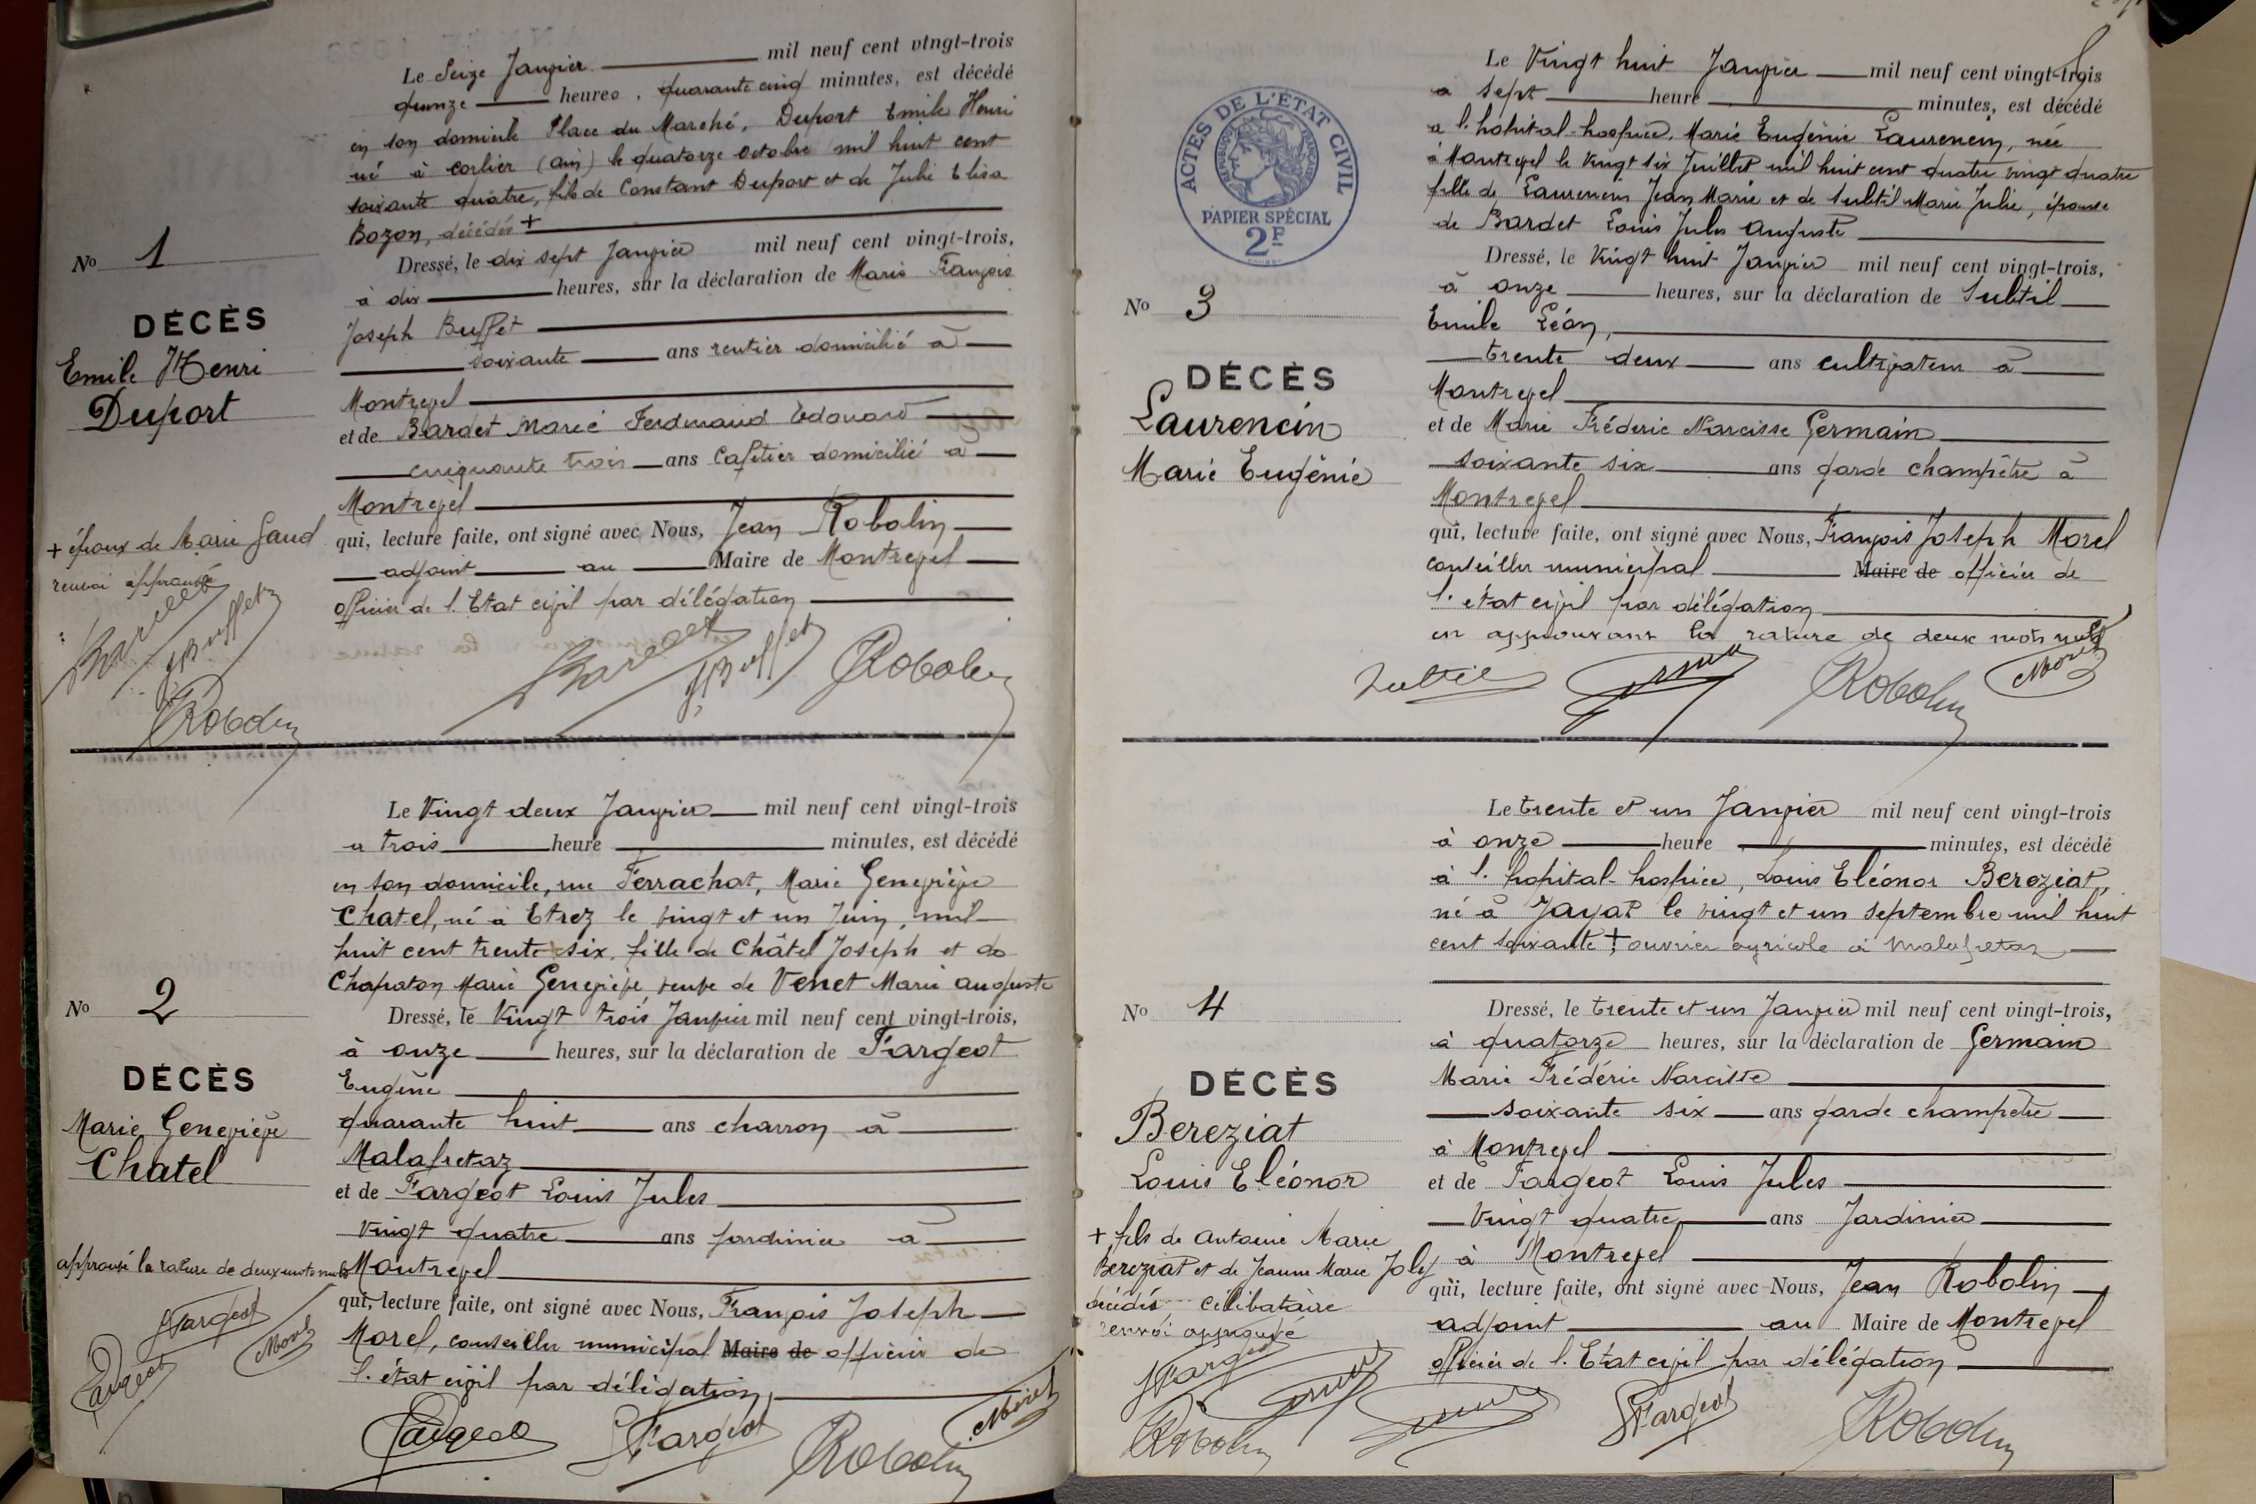 Le Seize Janvier mil neuf cent vingt-trois
quinze heures, quarante cinq minutes, est décédé
en son domicile Place du Marché, Duport Emile Henri
né à Corlier (Ain) le quatorze octobre mil huit cent
soixante quatre, fils de Constant Duport et de Julie Elisa
Bozon, décédés +
No 1
DÉCÈS
Emile Henri
Duport
Dressé, le dix sept Janvier mil neuf cent vingt-trois,
à dix heures, sur la déclaration de Marie François
Joseph Buffet
soixante ans rentier domicilié à
Montrevel
et de Bardet Marie Ferdinand Edouard
cinquante trois ans cafetier domicilié à
Montrevel
qui, lecture faite, ont signé avec Nous, Jean Robolin
adjoint au Maire de Montrevel
officier de l'Etat civil par délégation
+ époux de Marie Gaud
renvoi approuvé
Bardet JBuffet
JRobolin
Bardet JBuffet JRobolin
Le Vingt deux Janvier mil neuf cent vingt-trois
a trois heure minutes, est décédé
en son domicile, rue Ferrachat, Marie Geneviève
Chatel, né à Etrez le vingt et un Juin, mil
huit cent trente six, fille de Châtel Joseph et de
Chapaton Marie Geneviève, veuve de Venet Marie Auguste
No 2
DÉCÈS
Marie Geneviève
Chatel
Dressé, le Vingt trois Janvier mil neuf cent vingt-trois,
à onze heures, sur la déclaration de Fargeot
Eugène
quarante huit ans charron à
Malafretaz
et de Fargeot Louis Jules
Vingt quatre ans jardinier à
Montrevel
qui, lecture faite, ont signé avec Nous, François Joseph
Morel, conseiller municipal Maire de officier de
l'état civil par délégation
approuvé la rature de deux mots nuls
Fargeot
Fargeot Morel
Fargeot Fargeot JRobolin Morel
ACTES DE L'ÉTAT CIVIL
RÉPUBLIQUE FRANÇAISE
PAPIER SPÉCIAL
2F
Le Vingt huit Janvier mil neuf cent vingt-trois
a sept heure minutes, est décédé
a l'hôpital-hospice, Marie Eugénie Laurencin, née
à Montrevel le vingt six Juillet mil huit cent quatre vingt quatre
fille de Laurencin Jean Marie et de Subtil Marie Julie, épouse
de Bardet Louis Jules Auguste
No 3
DÉCÈS
Laurencin
Marie Eugénie
Dressé, le Vingt huit Janvier mil neuf cent vingt-trois,
à onze heures, sur la déclaration de Subtil
Emile Léon,
trente deux ans cultivateur à
Montrevel
et de Marie Fréderic Narcisse Germain
soixante six ans garde champêtre à
Montrevel
qui, lecture faite, ont signé avec Nous, François Joseph Morel
conseiller municipal Maire de officier de
l'état civil par délégation
en approuvant la rature de deux mots nuls
Subtil Germain JRobolin Morel
Le trente et un Janvier mil neuf cent vingt-trois
à onze heure minutes, est décédé
à l'hopital-hospice, Louis Eléonor Bereziat,
né à Jayat le vingt et un septembre mil huit
cent soixante +, ouvrier agricole à Malafretaz
No 4
DÉCÈS
Bereziat
Louis Eléonor
Dressé, le trente et un Janvier mil neuf cent vingt-trois,
à quatorze heures, sur la déclaration de Germain
Marie Frédéric Narcisse
soixante six ans garde champêtre
à Montrevel
et de Fargeot Louis Jules
Vingt quatre ans Jardinier
à Montrevel
qui, lecture faite, ont signé avec Nous, Jean Robolin
adjoint au Maire de Montrevel
officier de l'Etat civil par délégation
+ fils de Antoine Marie
Bereziat et de Jeanne Marie Joly
décédés célibataire
renvoi approuvé
Fargeot Germain
JRobolin
Germain Fargeot JRobolin